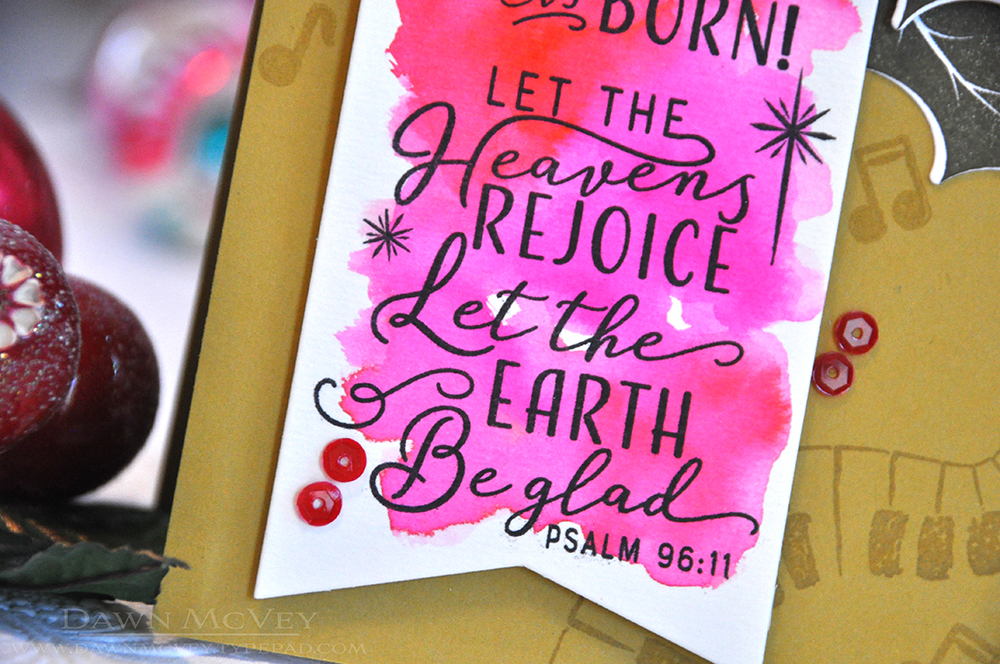 BORN!
LET THE
Heavens
REJOICE
Let the
EARTH
Be glad
PSALM 96:11
DAWN MCVEY
WWW.DAWNMCVEY.TYPEPAD.COM